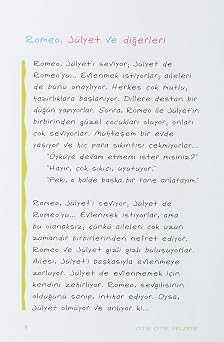 Romeo, Jülyet ve diğerleri
Romeo, Jülyet'i seviyor; Jülyet de
Romeo'yu... Evlenmek istiyorlar, aileleri
de bunu onaylıyor. Herkes çok mutlu,
hazırlıklara başlanıyor. Dillere destan bir
düğün yapıyorlar. Sonra, Romeo ile Jülyet'in
birbirinden güzel çocukları oluyor, onları
çok seviyorlar. Muhteşem bir evde
yaşıyor ve hiç para sıkıntısı çekmiyorlar...
"Öyküye devam etmemi ister misiniz?"
"Hayır, çok sıkıcı, uyutuyor."
"Peki, o halde başka bir tane anlatayım."
Romeo, Jülyet'i seviyor, Jülyet de
Romeo'yu... Evlenmek istiyorlar, ama
bu olanaksız, çünkü aileleri çok uzun
zamandır birbirlerinden nefret ediyor.
Romeo ve Jülyet gizli gizli buluşuyorlar.
Ailesi, Jülyet'i başkasıyla evlenmeye
zorluyor. Jülyet de evlenmemek için
kendini zehirliyor. Romeo, sevgilisinin
öldüğünü sanıp, intihar ediyor. Oysa,
Jülyet ölmüyor ve anlıyor ki...